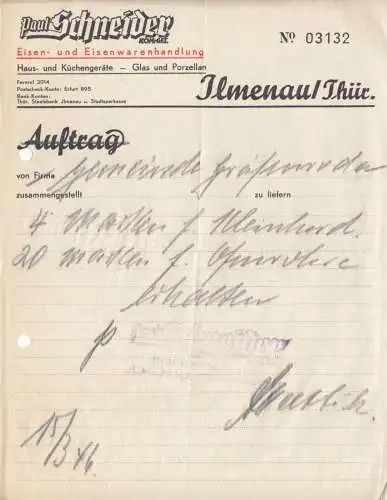 Paul Schneider
KOM.-GES.
Eisen- und Eisenwarenhandlung
No 03132
Haus- und Küchengeräte — Glas und Porzellan
Fernruf 2014
Postscheck-Konto: Erfurt 895
Bank-Konten:
Thür. Staatsbank Ilmenau u. Stadtsparkasse
Ilmenau/Thür.
Auftrag
von Firma Gemeinde Gräfenroda
zusammengestellt zu liefern
4 Marken f. Kleinherd.
20 Marken f.
Erhalten
15/3 46.